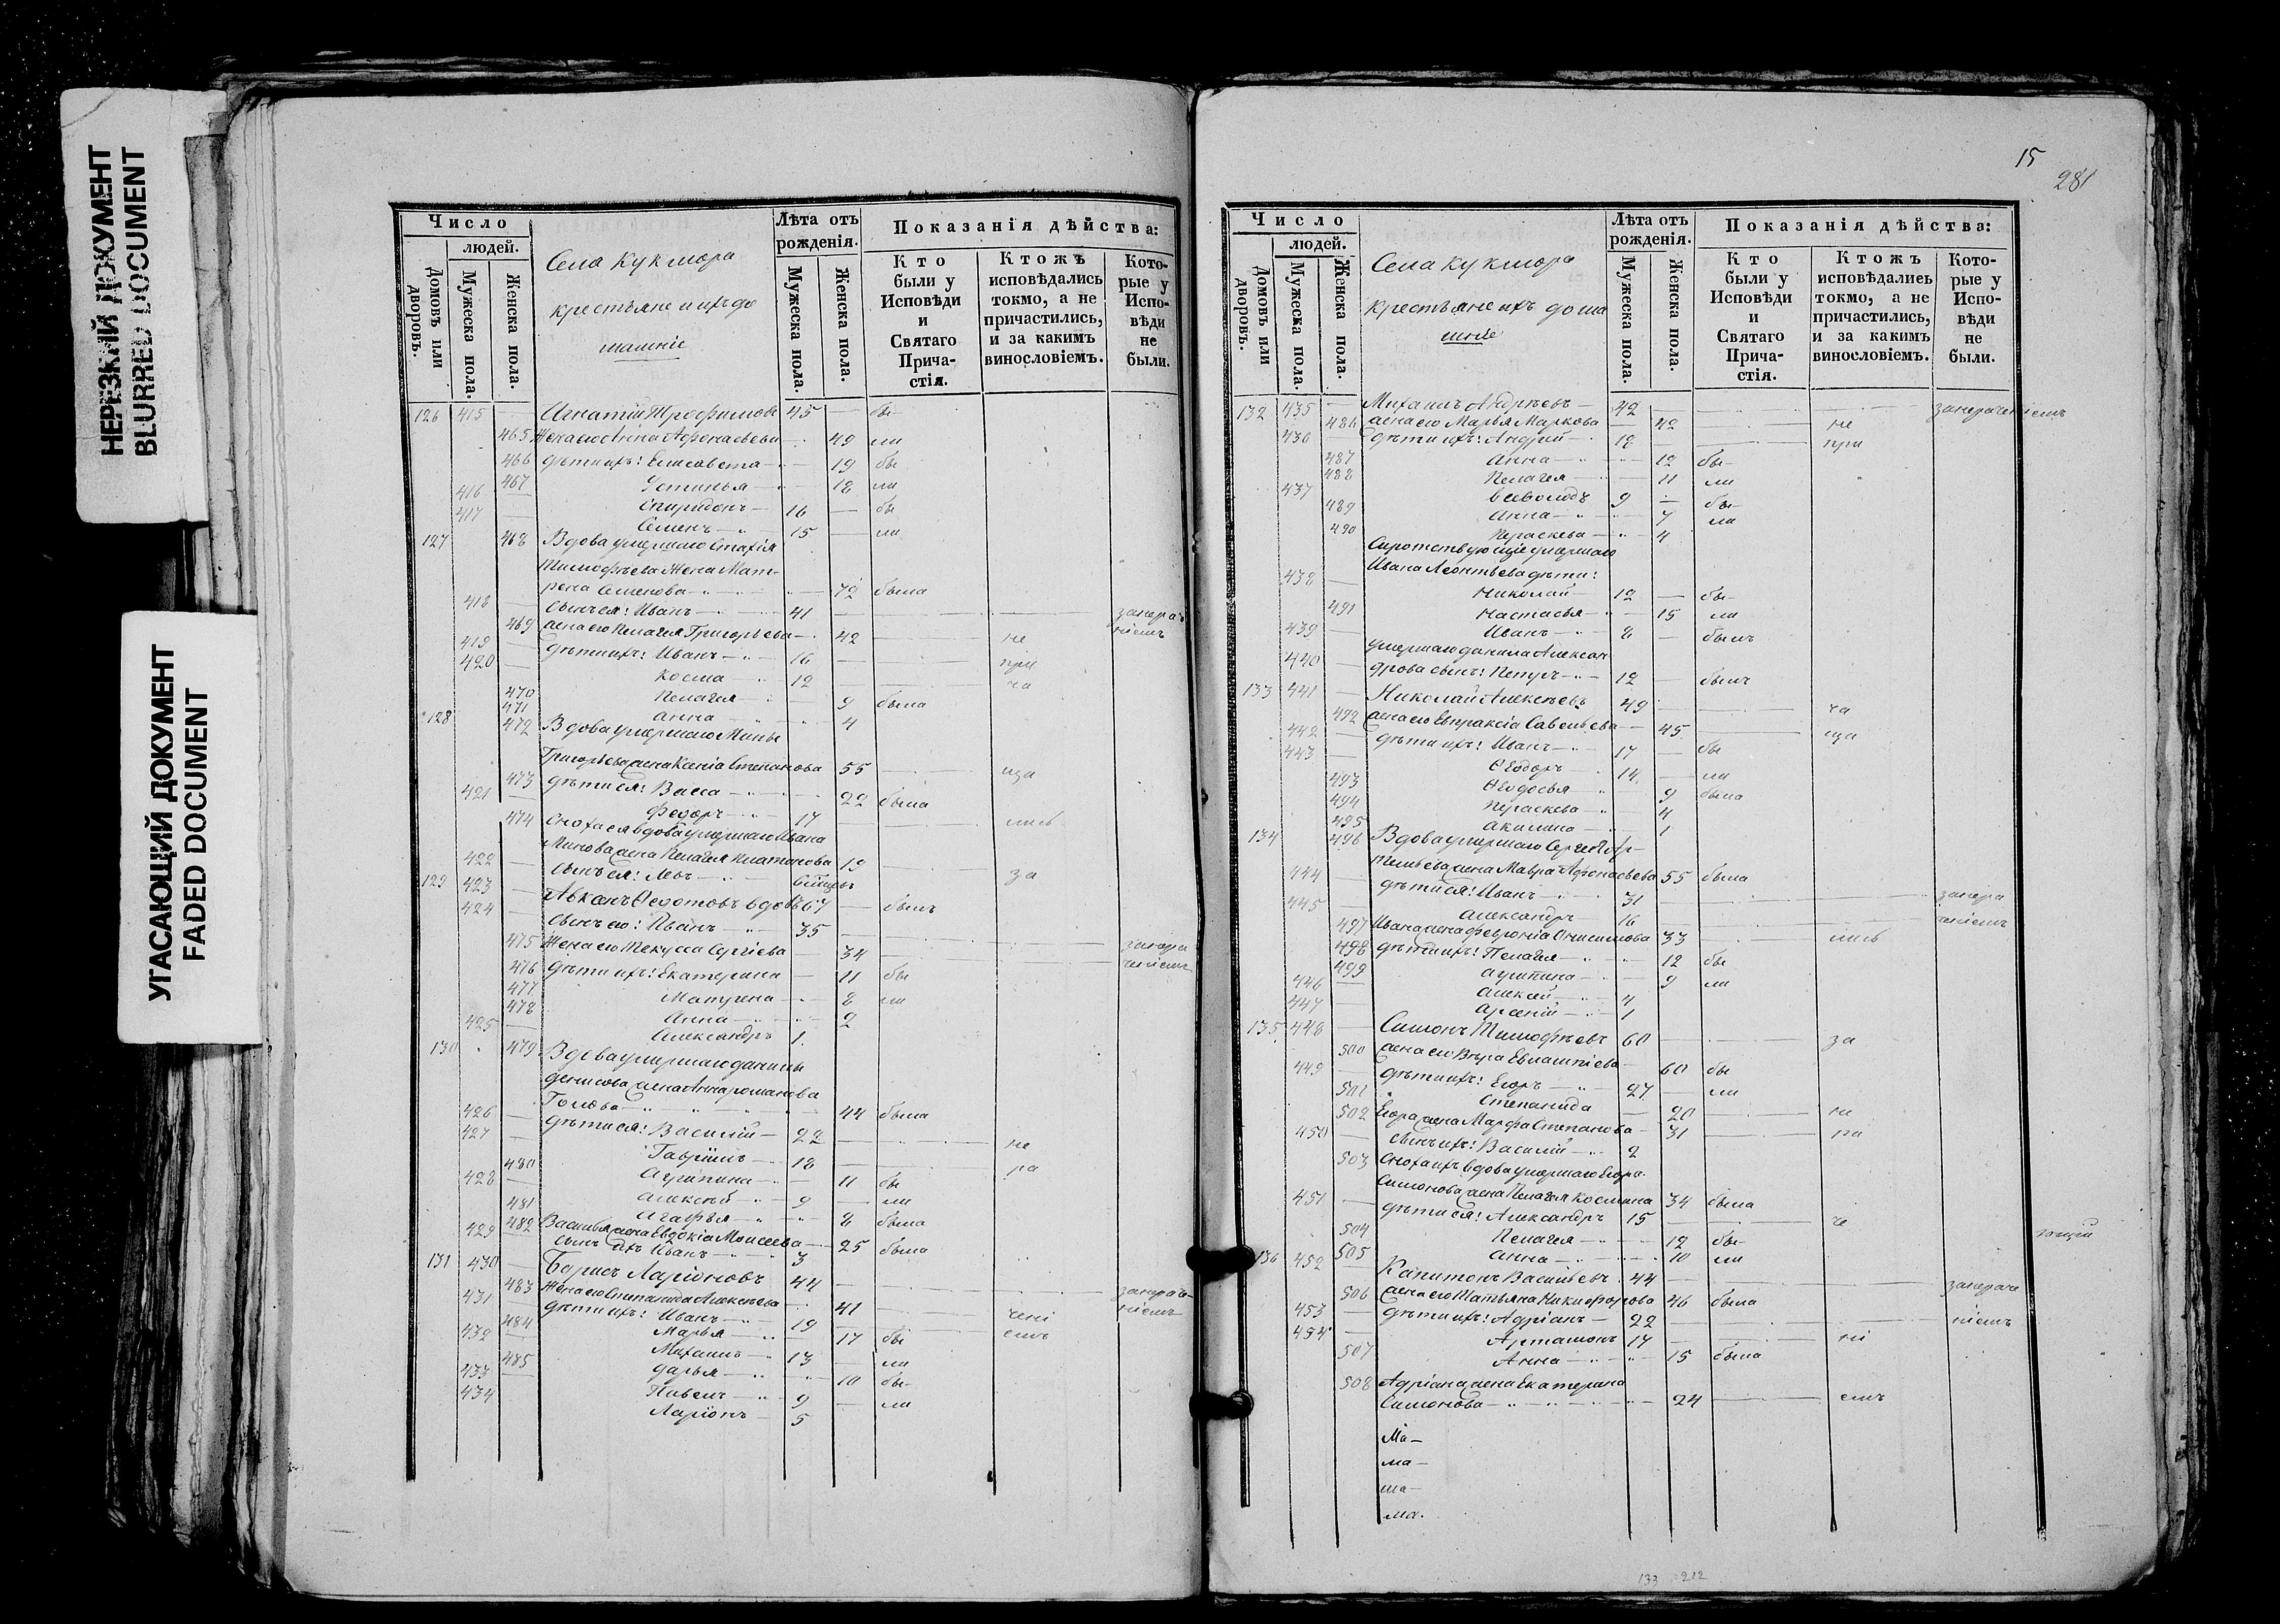 НЕРЕЗКИЙ ДОКУМЕНТ
BLURRED DOCUMENT
УГАСАЮЩИЙ ДОКУМЕНТ
FADED DOCUMENT
Число
людей.
Домовъ или дворовъ.
Мужеска пола.
Женска пола.
Села Кукмора
крестьяне и ихъ до
машніе
Лѣта отъ рожденія.
Мужеска пола.
Женска пола.
Показанія дѣйства:
Кто были у Исповѣди и Святаго Прича- стія.
Ктожъ исповѣдались токмо, а не причастились, и за какимъ винословіемъ.
Кото- рые у Испо- вѣди не были.
126 415 — Игнатій Трофимовъ 45 — бы
465 Жена его Анна Афонасьева 49 ли
466 дѣти ихъ: Елисавета 19 бы
467 Устинья 18 ли
416 Спиридонъ 16 — бы
417 Семенъ 15 — ли
127 468 Вдова умершаго
Тимофѣева жена Мат-
рена Семенова 72 была
418 сынъ ея: Иванъ 41
469 жена его Пелагея Григорьева 42 не
419 дѣти ихъ: Иванъ 16 при
420 Косма 12 ча
470 Пелагея 9 была
471 Анна 4
128 472 Вдова умершаго Мины
Григорьева жена Ксенія Степанова 55 ща
473 дѣти ея: Васса 22 была
421 Федоръ 17 лись
474 Сноха ея вдова умершаго Ивана
Минова жена Пелагея 19 за
422 сынъ ея: Левъ
129 423 Ѳедотовъ вдовъ 67 — былъ
424 сынъ его: Иванъ 35
475 Жена его Текуса Сергіева 34
476 дѣти ихъ: Екатерина 11 бы
477 Матрена 8 ли
478 Анна 2
425 Александръ 1
130 479 Вдова умершаго Данилы
Денисова жена Анна Романова
44 была
426 дѣти ея: Василій 22 не
427 Гавріилъ 18 ра
480 Агрипина 11 бы
428 Алексѣй 9 ли
481 Агафья 8 была
482 Василья жена Евдокія Моисеева 25 была
429 сынъ ихъ Иванъ 3
131 430 Борисъ Ларіоновъ 44
483 Жена его Степанида Алексѣева 41 чені
431 дѣти ихъ: Иванъ 19 емъ
484 Марья 17 бы
432 Михаилъ 13 ли
485 Дарья 10 бы-
433 Павелъ 9 — ли
434 Ларіонъ 5
15
281
Число
людей.
Домовъ или дворовъ.
Мужеска пола.
Женска пола.
Села Кукмора
крестьяне ихъ дома
шніе
Лѣта отъ рожденія.
Мужеска пола.
Женска пола.
Показанія дѣйства:
Кто были у Исповѣди и Святаго Прича- стія.
Ктожъ исповѣдались токмо, а не причастились, и за какимъ винословіемъ.
Кото- рые у Испо- вѣди не были.
132 435 — Михаилъ Андреевъ 42
486 жена его Марья Маркова 42 не
436 дѣти ихъ: Андрей 18 при
487 Анна 12 бы-
488 Пелагея 11 ли
437 Всеволодъ 9 бы-
489 Анна 7 ли
490 Параскева 4
Сиротствующіе умершаго
Ивана Леонтьева дѣти:
438 Николай 12 — бы-
491 Настасья 15 ли
439 Иванъ 8 — былъ
умершаго Данила Алексан
440 дрова сынъ: Петръ 12 — былъ
133 441 — Николай Алексѣевъ 49 ча
492 жена его Евпраксія Савельева 45 ща
442 дѣти ихъ: Иванъ 17 — бы
443 Ѳеодоръ 14 — ли
493 Ѳеодосья 9 была
494 Параскева 4
495 Акилина 1
134 496 Вдова умершаго Сергея
жена Мавра Афонасьева 55 была
444 дѣти ея: Иванъ 31
445 Александръ 16
497 Ивана жена Февронія Онисимова 33 лись
498 дѣти ихъ: Пелагея 12 бы
499 Агрипина 9 ли
446 Алексей 4
447 Арсеній 1
135 448 — Симонъ Тимофѣевъ 60 за
500 жена его Вѣра Евлампіева 60 бы
449 дѣти ихъ: Егоръ 27 — ли
501 Степанида 20 не
502 Егора жена Марфа Степанова 31 ра
450 сынъ ихъ: Василій 2
503 Сноха ихъ вдова умершаго Егора
Симонова жена Пелагея Космина 34 была
451 дѣти ея: Александръ 15 че
504 Пелагея 12 бы-
505 Анна 10 ли
136 452 Капитонъ Васильевъ 44
506 жена его Татьяна Никифорова 46 была
453 дѣти ихъ: Адріанъ 22
454 Артамонъ 17 ні
507 Анна 15 была
508 Адріана жена Екатерина
Симонова 24 емъ
Ма —
ма —
ма —
ма.
133 212